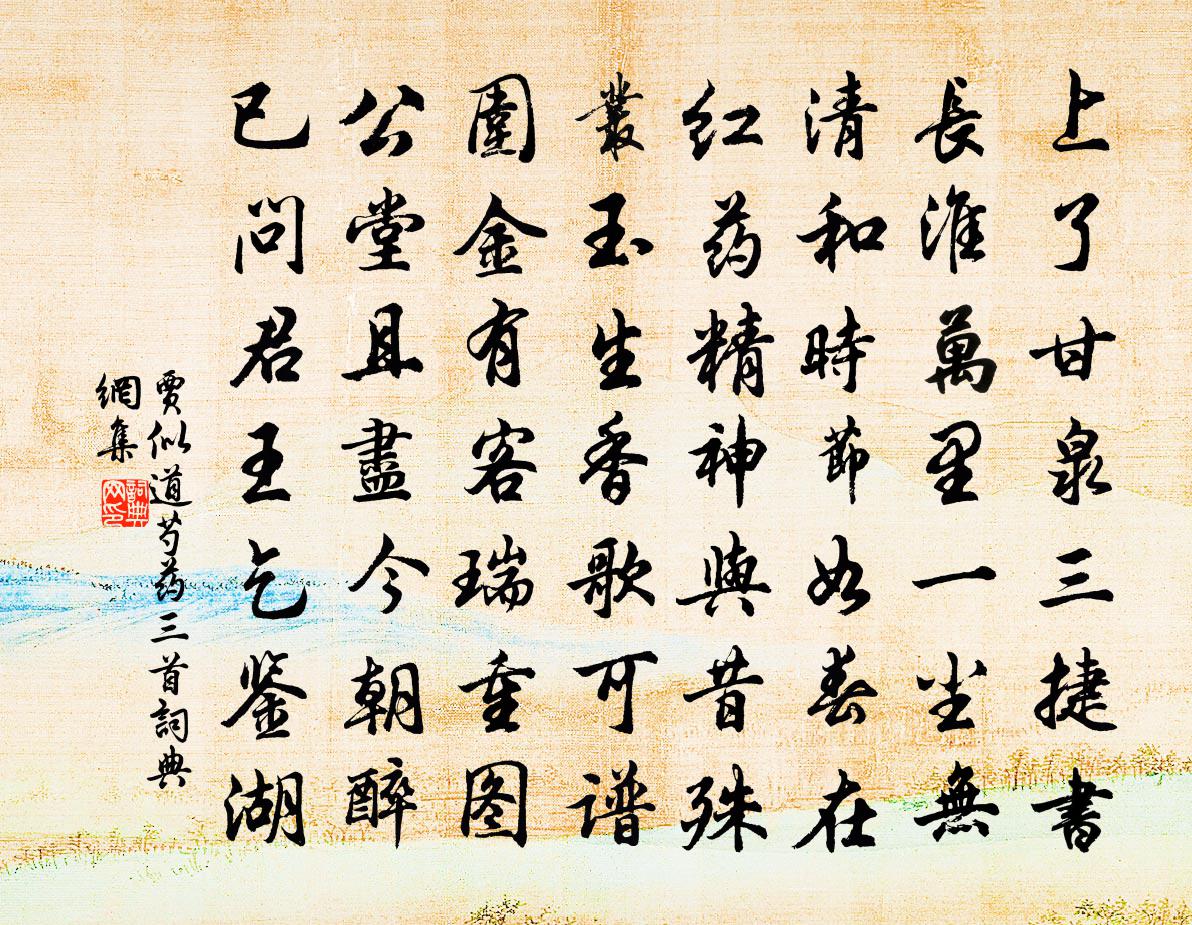 上了甘泉三捷書
長淮萬里一尘無
清和時節如春在
红药精神與昔殊
叢玉生香歌可谱
圍金有客瑞重图
公堂且盡今朝醉
已問君王乞鉴湖
賈似道芍药三首詞典
網集
詞典
网印